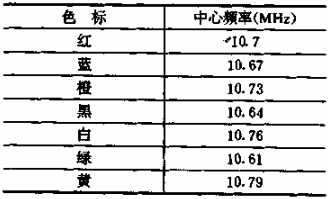 色 标 中心频率(MHz)
红 10.7
蓝 10.67
橙 10.73
黑 10.64
白 10.76
绿 10.61
黄 10.79